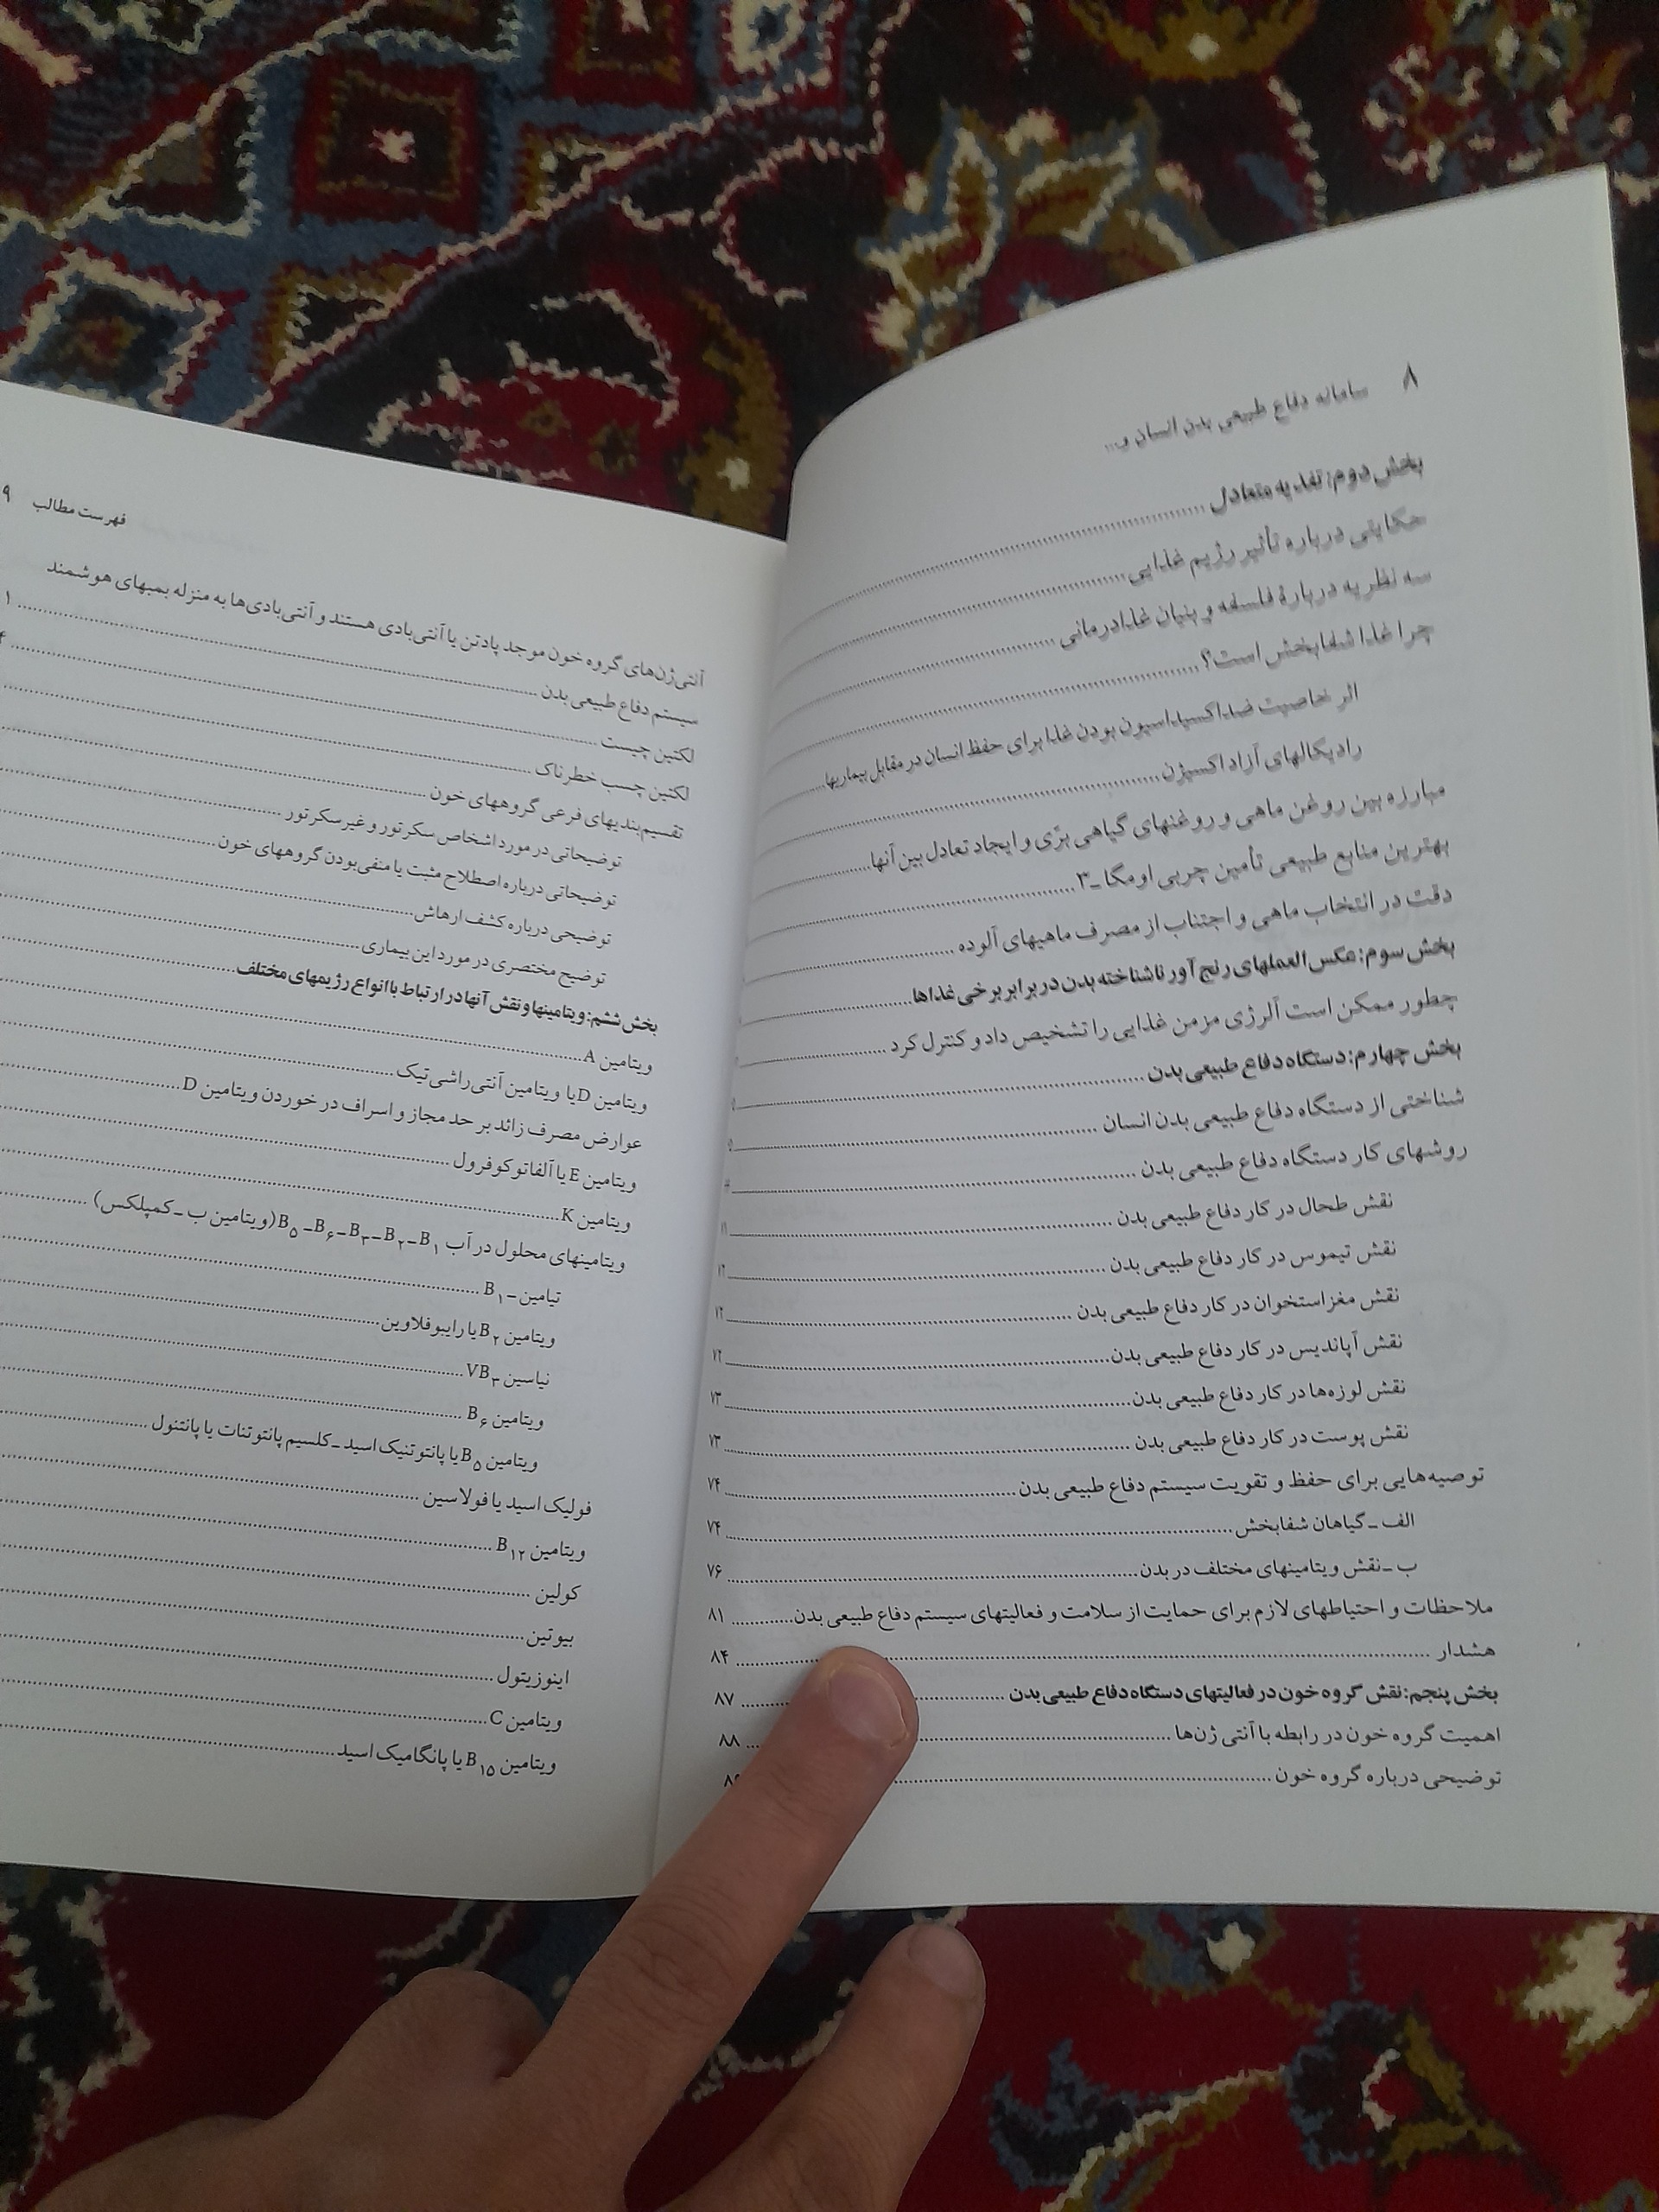 ۸ سامانه دفاع طبیعی بدن انسان و...
بخش دوم: تغذیه متعادل
حکایتی درباره تأثیر رژیم غذایی
سه نظریه دربارۀ فلسفه و بنیان غذادرمانی
چرا غذا شفابخش است؟
اثر خاصیت ضداکسیداسیون بودن غذا برای حفظ انسان در مقابل بیماریها
رادیکالهای آزاد اکسیژن
مبارزه بین روغن ماهی و روغنهای گیاهی برّی و ایجاد تعادل بین آنها
بهترین منابع طبیعی تأمین چربی اومگا ـ۳
دقت در انتخاب ماهی و اجتناب از مصرف ماهیهای آلوده
بخش سوم: عکس‌العملهای رنج‌آور ناشناخته بدن در برابر برخی غذاها
چطور ممکن است آلرژی مزمن غذایی را تشخیص داد و کنترل کرد
بخش چهارم: دستگاه دفاع طبیعی بدن
شناختی از دستگاه دفاع طبیعی بدن انسان
روشهای کار دستگاه دفاع طبیعی بدن
نقش طحال در کار دفاع طبیعی بدن
نقش تیموس در کار دفاع طبیعی بدن
نقش مغز استخوان در کار دفاع طبیعی بدن
نقش آپاندیس در کار دفاع طبیعی بدن ۷۲
نقش لوزه‌ها در کار دفاع طبیعی بدن ۷۳
نقش پوست در کار دفاع طبیعی بدن ۷۳
توصیه‌هایی برای حفظ و تقویت سیستم دفاع طبیعی بدن ۷۴
الف ـ گیاهان شفابخش ۷۴
ب ـ نقش ویتامینهای مختلف در بدن ۷۶
ملاحظات و احتیاطهای لازم برای حمایت از سلامت و فعالیتهای سیستم دفاع طبیعی بدن ۸۱
هشدار ۸۴
بخش پنجم: نقش گروه خون در فعالیتهای دستگاه دفاع طبیعی بدن ۸۷
اهمیت گروه خون در رابطه با آنتی ژن‌ها ۸۸
توضیحی درباره گروه خون
فهرست مطالب ۹
آنتی‌ژن‌های گروه خون موجد پادتن یا آنتی‌بادی هستند و آنتی‌بادی‌ها به منزله بمبهای هوشمند
سیستم دفاع طبیعی بدن
لکتین چیست
لکتین چسب خطرناک
تقسیم‌بندیهای فرعی گروههای خون
توضیحاتی در مورد اشخاص سکرتور و غیرسکرتور
توضیحاتی درباره اصطلاح مثبت یا منفی‌بودن گروههای خون
توضیحی درباره کشف ارهاش
توضیح مختصری در مورد این بیماری
بخش ششم: ویتامینها و نقش آنها در ارتباط با انواع رژیمهای مختلف
ویتامین A
ویتامین D یا ویتامین آنتی‌راشی‌تیک
عوارض مصرف زائد بر حد مجاز و اسراف در خوردن ویتامین D
ویتامین E یا آلفاتوکوفرول
ویتامین K
ویتامینهای محلول در آب B۱ـB۲ـB۳ـB۶ـB۵ (ویتامین ب ـ کمپلکس)
تیامین ـ B۱
ویتامین B۲ یا رایبوفلاوین
نیاسین VB۳
ویتامین B۶
ویتامین B۵ یا پانتوتنیک اسید ـ کلسیم پانتوتنات یا پانتنول
فولیک اسید یا فولاسین
ویتامین B۱۲
کولین
بیوتین
اینوزیتول
ویتامین C
ویتامین B۱۵ یا پانگامیک اسید